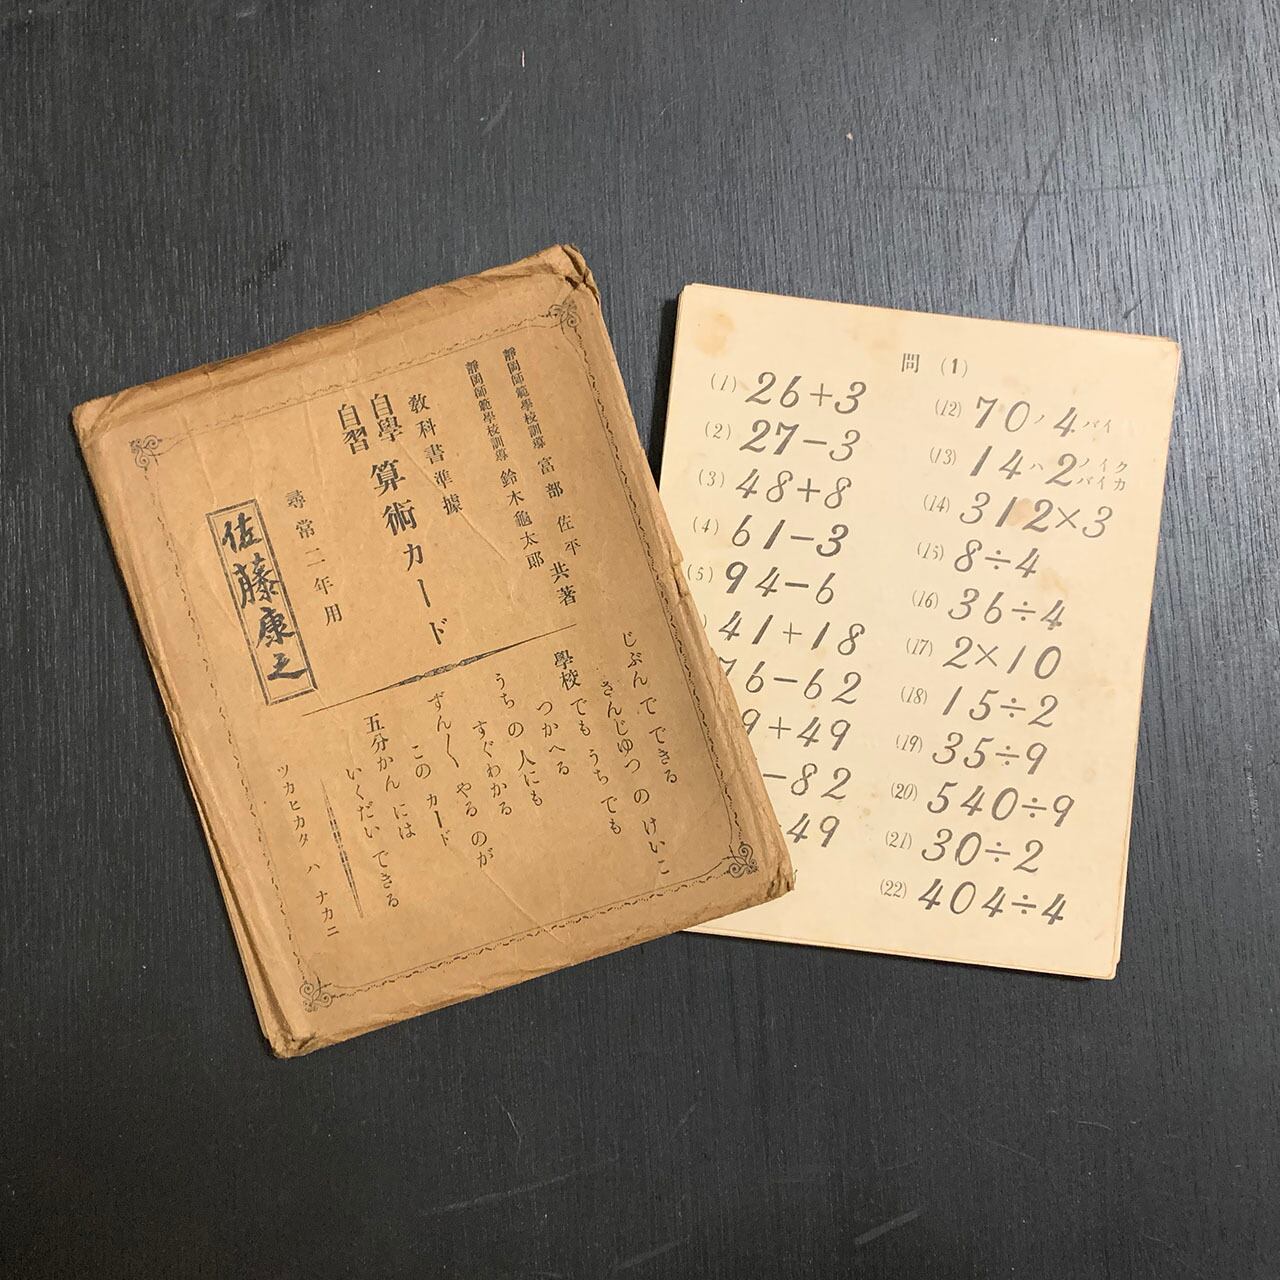 靜岡師範學校訓導 富部佐平
靜岡師範學校訓導 鈴木龜太郎
共著
教科書準據
自學
自習
算術カード
尋常二年用
佐藤康
じぶん で できる
さんじゆつ の けいこ
學校 でも うち でも
つかへる
うち の 人にも
すぐわかる
ずん〱 やる のが
この カード
五分かん には
いくだい できる
ツカヒカタ ハ ナカニ
問 (1)
(1) 26+3
(2) 27−3
(3) 48+8
(4) 61−3
(5) 94−6
41+18
76−62
9+49
−82
49
(12) 70ノ4バイ
(13) 14ハ2ノイクバイカ
(14) 312×3
(15) 8÷4
(16) 36÷4
(17) 2×10
(18) 15÷2
(19) 35÷9
(20) 540÷9
(21) 30÷2
(22) 404÷4